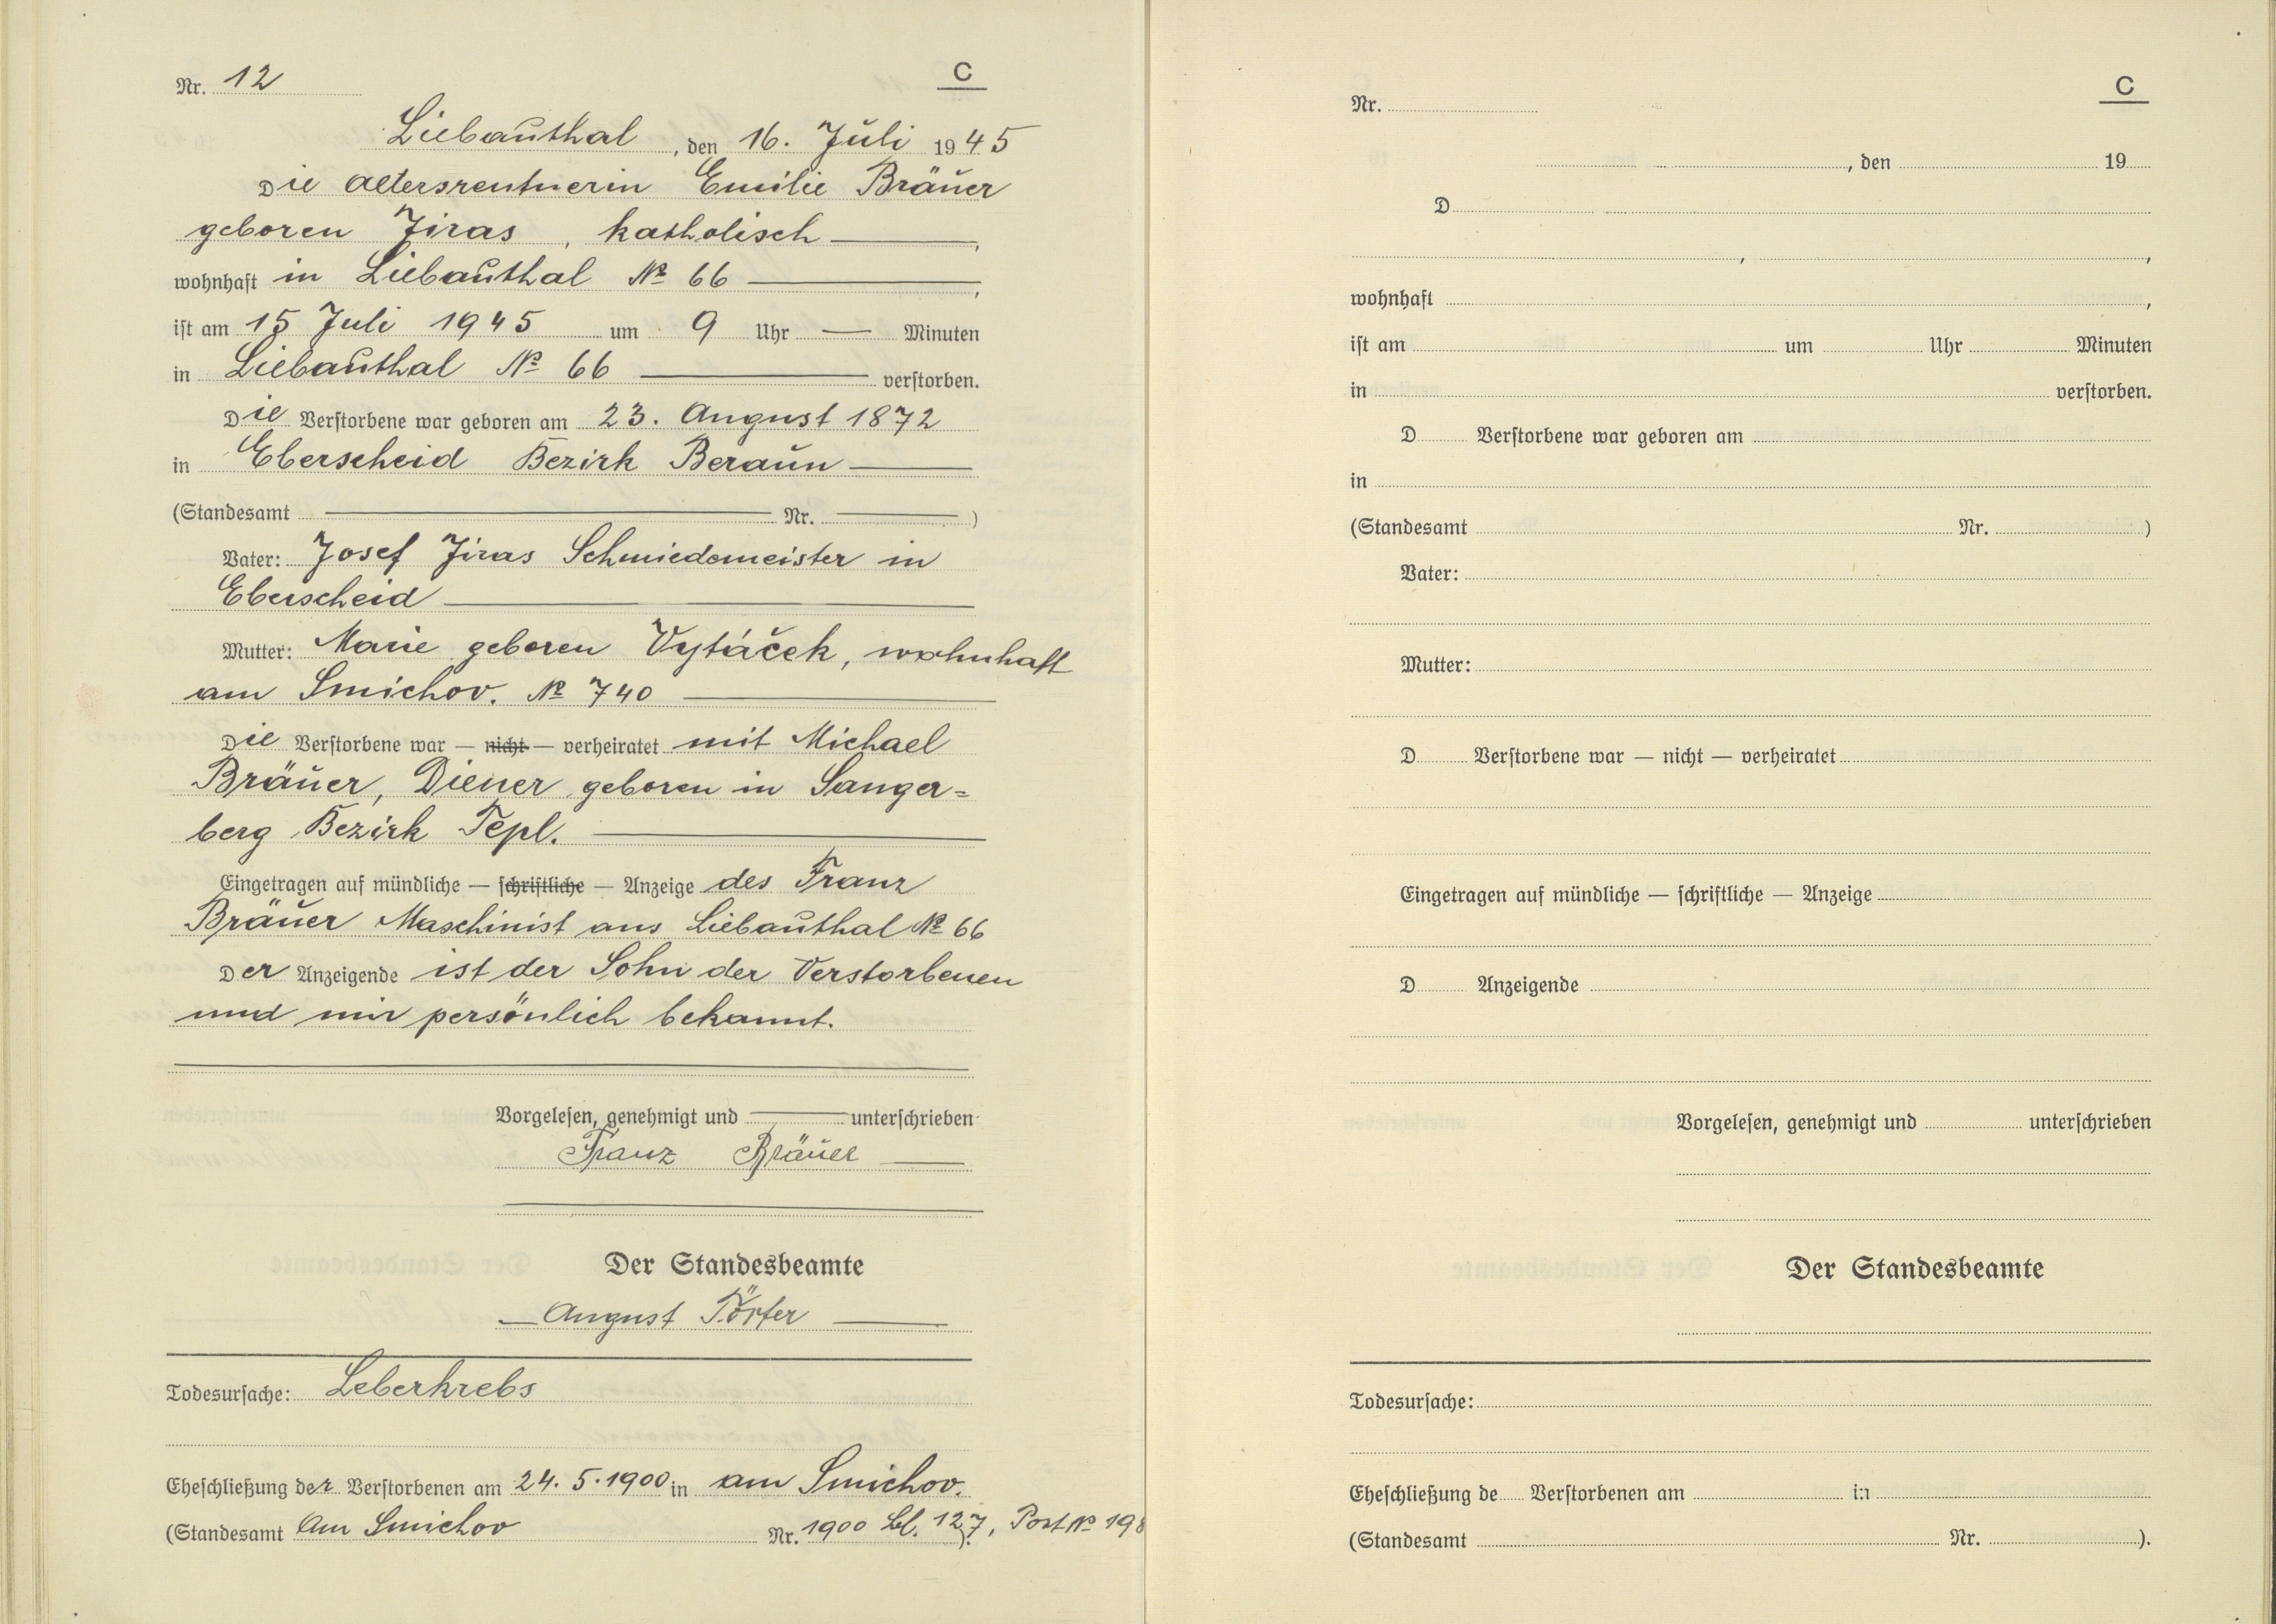 Nr. 12
C
Liebauthal, den 16. Juli 1945
Die Altersrentnerin Emilie Bräuer
geboren Jiras, katholisch
wohnhaft in Liebauthal № 66,
ist am 15 Juli 1945 um 9 Uhr — Minuten
in Liebauthal № 66 verstorben.
Die Verstorbene war geboren am 23. August 1872
in Eberscheid Bezirk Beraun
(Standesamt — Nr. —)
Vater: Josef Jiras Schmiedemeister in
Eberscheid
Mutter: Marie geboren Vytáček, wohnhaft
am Smichov. № 740
Die Verstorbene war — nicht — verheiratet mit Michael
Bräuer, Diener geboren in Sanger=
berg Bezirk Tepl.
Eingetragen auf mündliche — schriftliche — Anzeige des Franz
Bräuer Maschinist aus Liebauthal № 66
Der Anzeigende ist der Sohn der Verstorbenen
und mir persönlich bekannt.
Vorgelesen, genehmigt und — unterschrieben
Franz Bräuer
Der Standesbeamte
August
Todesursache: Leberkrebs
Eheschließung der Verstorbenen am 24. 5. 1900 in am Smichov.
(Standesamt Am Smichov Nr. 1900 bl. 127, Post № 198).
C
Nr.
, den 19
D
,
,
wohnhaft ,
ist am um Uhr Minuten
in verstorben.
D Verstorbene war geboren am
in
(Standesamt Nr. )
Vater:
Mutter:
D Verstorbene war — nicht — verheiratet
Eingetragen auf mündliche — schriftliche — Anzeige
D Anzeigende
Vorgelesen, genehmigt und unterschrieben
Der Standesbeamte
Todesursache:
Eheschließung de Verstorbenen am in
(Standesamt Nr. ).